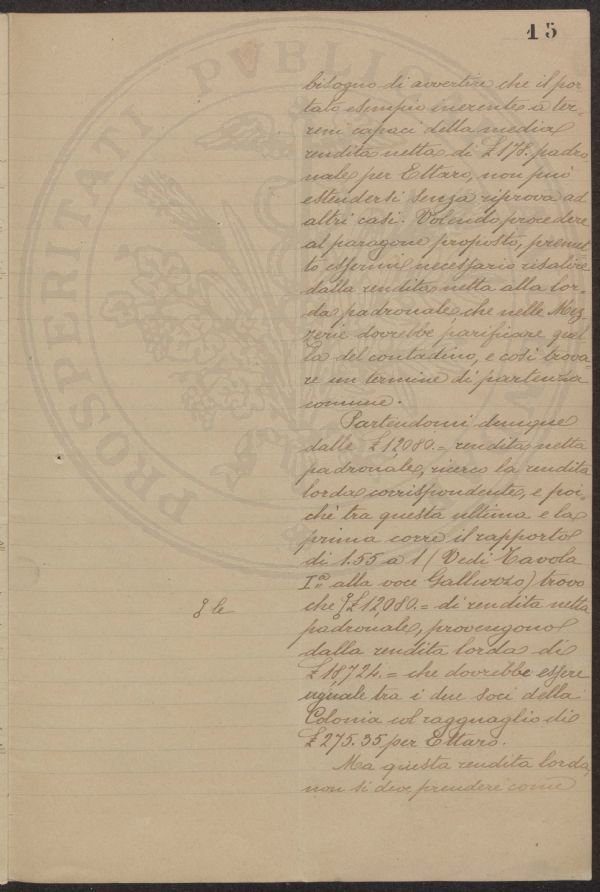 15
bisogno di avvertire che il por-
tato esempio inerente a ter-
reni capaci della media
rendita netta di £ 178. padro
nale per Ettaro, non può
estendersi senza riprova ad
altri casi. Volendo procedere
al paragone proposto, premet
to essermi necessario risalire
dalla rendita netta alla lor-
da padronale che nelle Mez-
zerie dovrebbe parificare quel
la del contadino, e così trova-
re un termine di partenza
comune.
Partendomi dunque
dalle £ 12,080.= rendita netta
padronale, ricerco la rendita
lorda corrispondente, e poi-
chè tra questa ultima e la
prima corre il rapporto
di 1.55 a 1 (Vedi Tavola
Iª alla voce Galluzzo) trovo
che £ 12,080.= di rendita netta
le
padronale, provengono
dalla rendita lorda di
£ 18,724.= che dovrebbe essere
uguale tra i due soci della
Colonia col ragguaglio di
£ 275.35 per Ettaro.
Ma questa rendita lorda,
non si deve prendere come
PROSPERITATI PVBLICAE